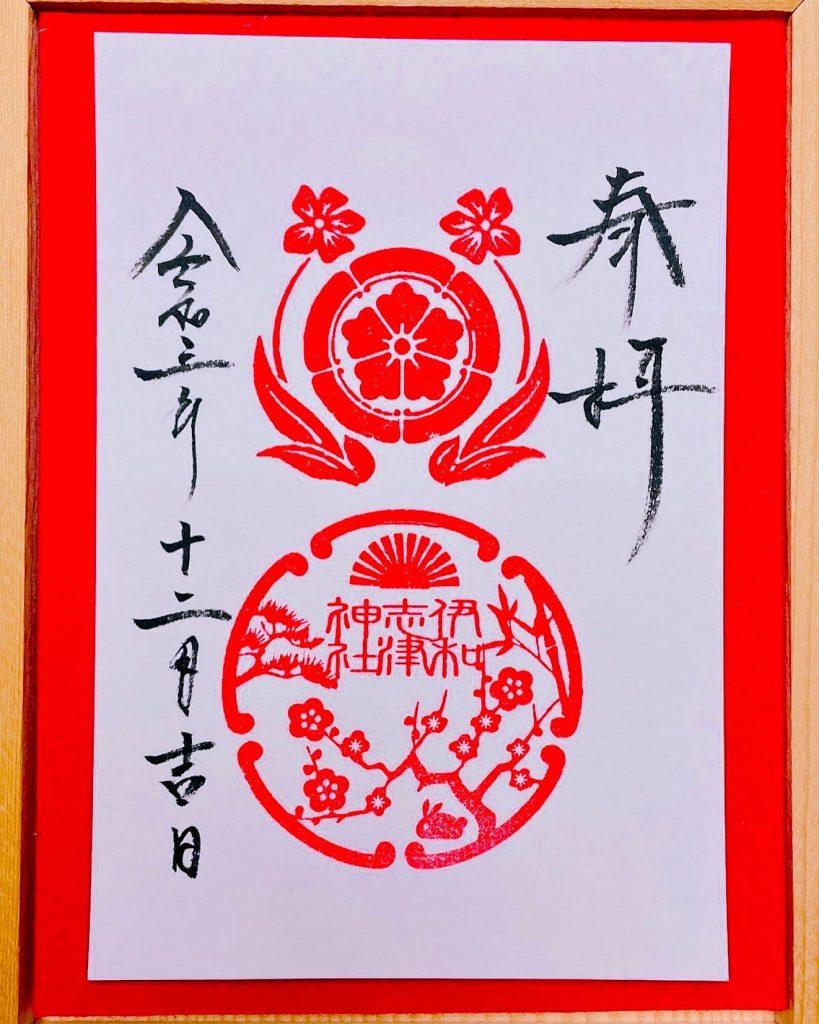 奉拝
伊和
志津
神社
令和三年十二月吉日